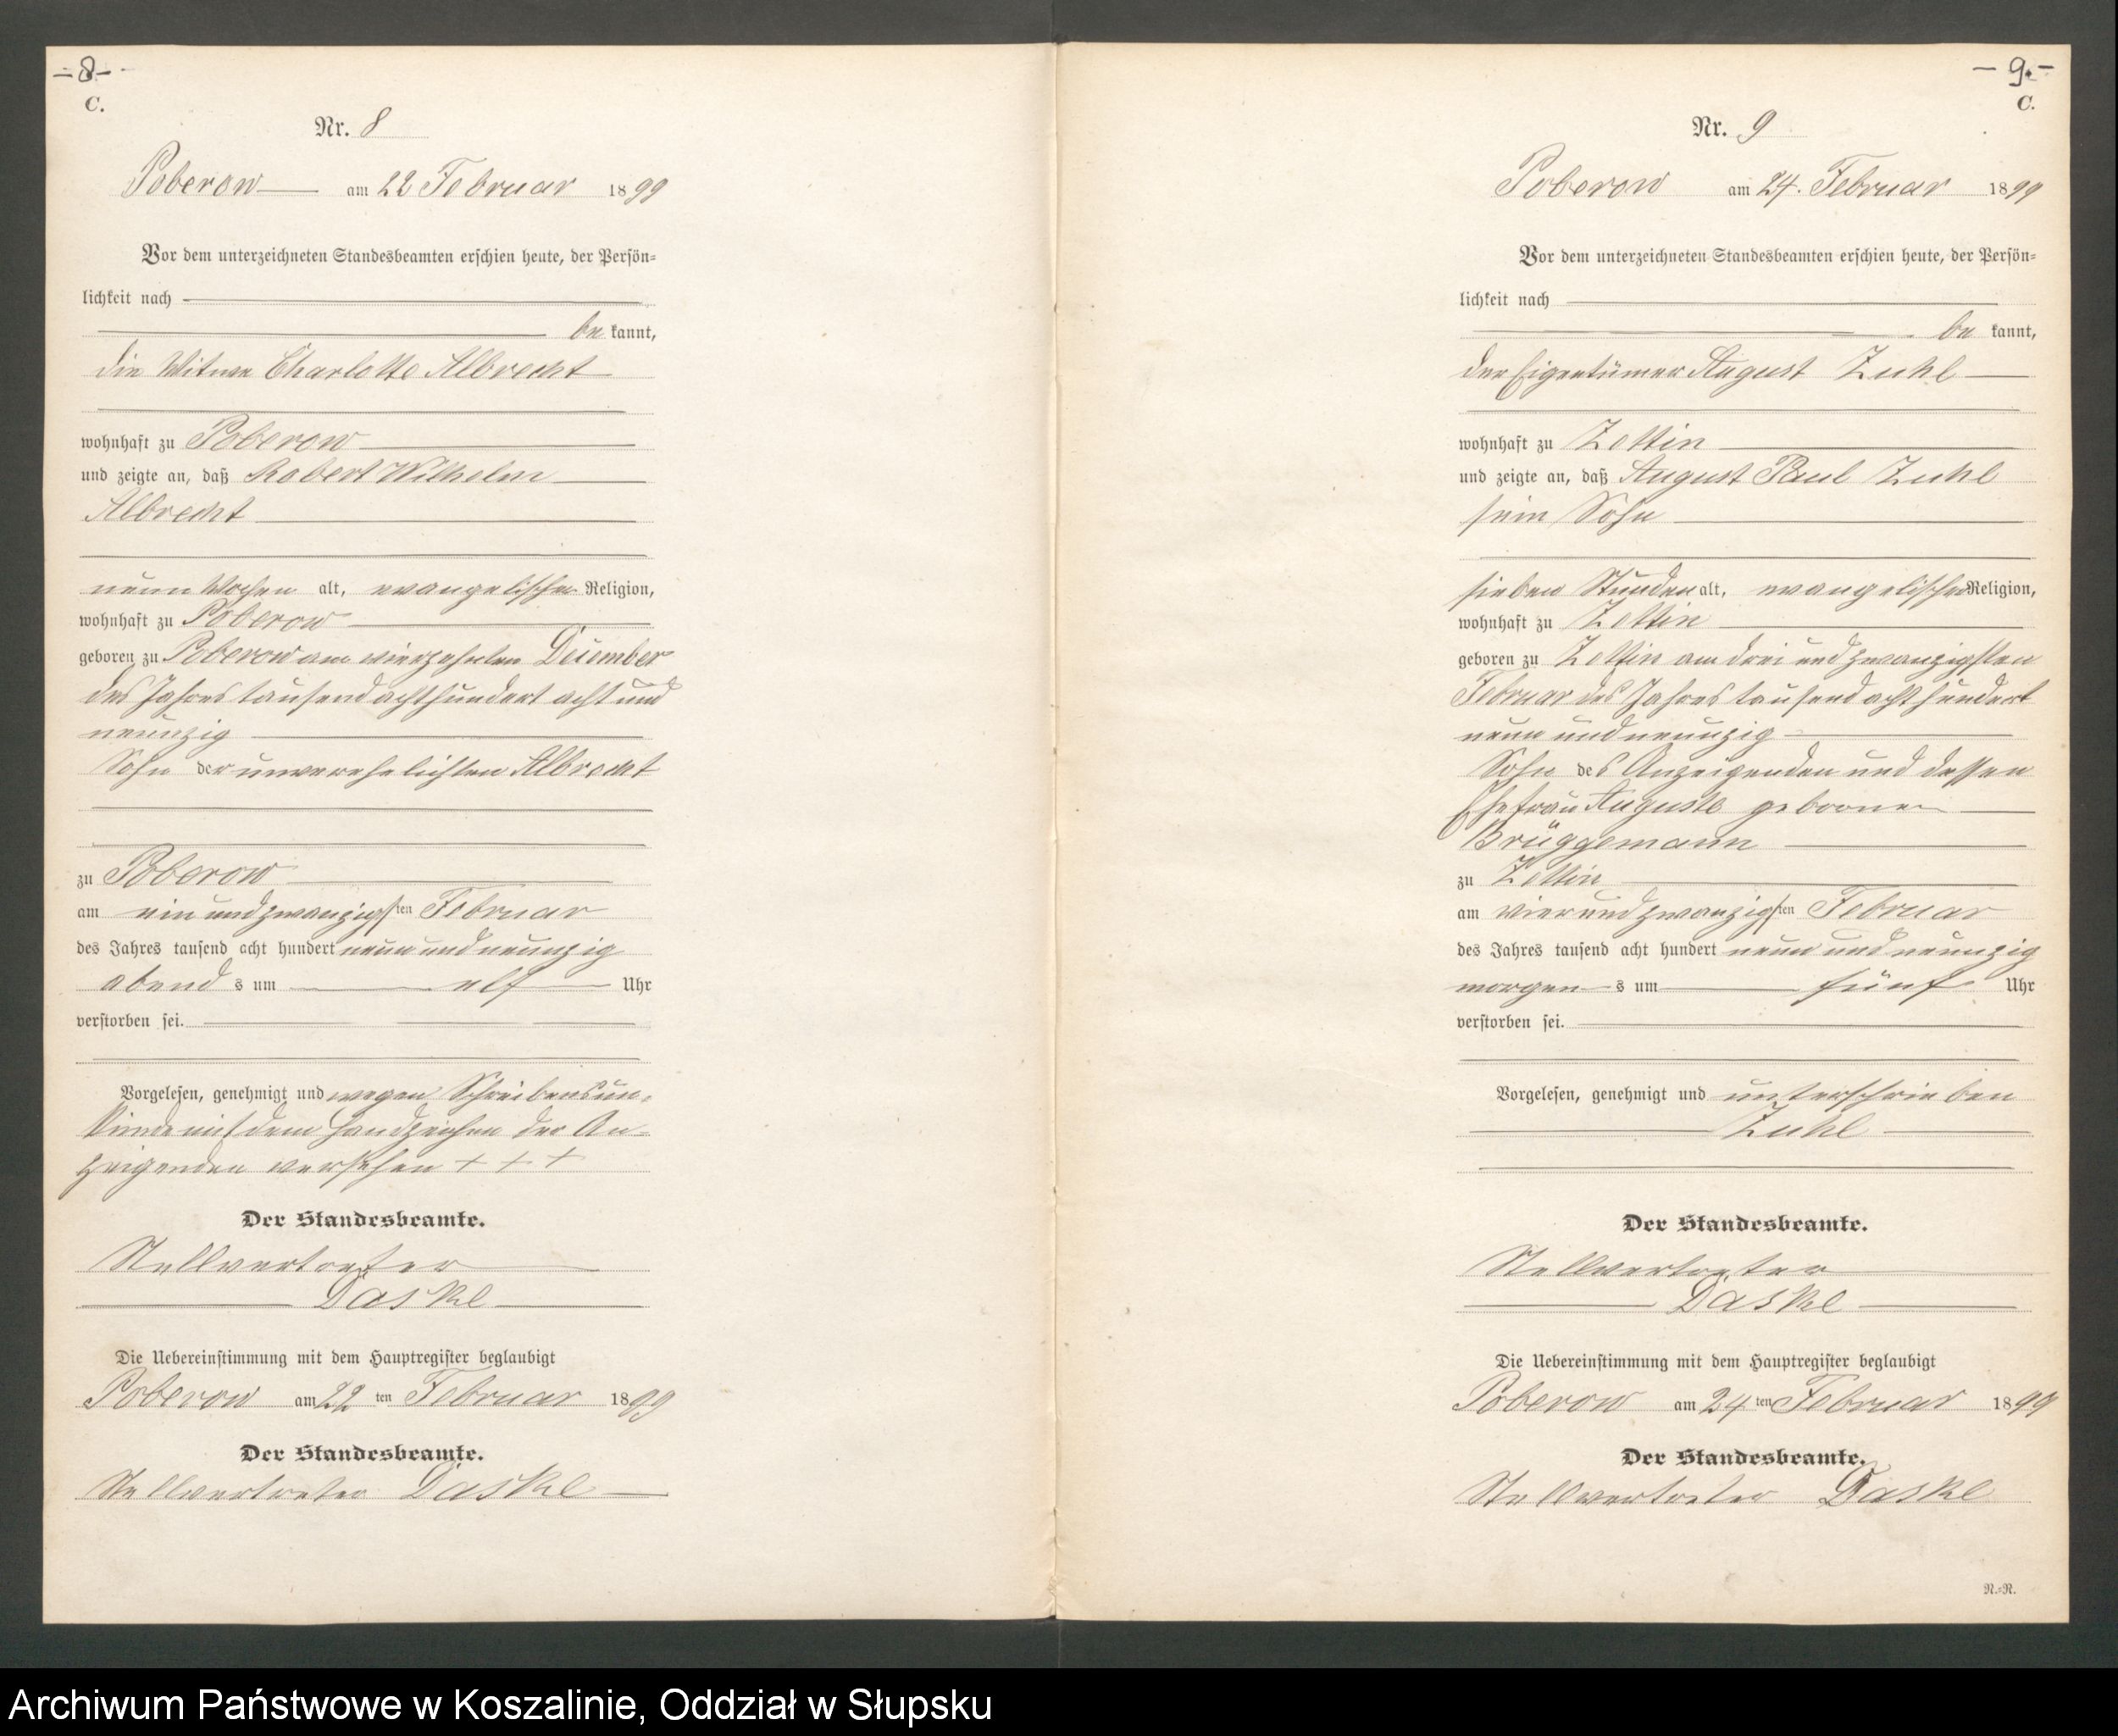 - 8 -
C.
Nr. 8
Poberow am 22 Februar 1899
Vor dem unterzeichneten Standesbeamten erschien heute, der Persön-
lichkeit nach
be kannt,
die Witwe Charlotte Albrecht
wohnhaft zu Poberow
und zeigte an, daß Robert Wilhelm
Albrecht
neun Wochen alt, evangelischer Religion,
wohnhaft zu Poberow
geboren zu Poberow am vierzehnten Dezember
des Jahres tausend achthundert acht und
neunzig
Sohn der unverehelichten Albrecht
zu Poberow
am ein und zwanzigsten Februar
des Jahres tausend acht hundert neun und neunzig
abend s um elf Uhr
verstorben sei.
Vorgelesen, genehmigt und wegen Schreibensun-
kunde mit dem Handzeichen der An-
zeigenden versehen + + +
Der Standesbeamte.
Stellvertreter
Daske
Die Uebereinstimmung mit dem Hauptregister beglaubigt
Poberow am 22 ten Februar 1899
Der Standesbeamte.
Stellvertreter Daske
- 9. -
C.
Nr. 9
Poberow am 24. Februar 1899
Vor dem unterzeichneten Standesbeamten erschien heute, der Persön-
lichkeit nach
be kannt,
der Eigentümer August Zuhl
wohnhaft zu Zettin
und zeigte an, daß August Paul Zuhl
sein Sohn
sieben Stunden alt, evangelischer Religion,
wohnhaft zu Zettin
geboren zu Zettin am drei und zwanzigsten
Februar des Jahres tausend acht hundert
neun und neunzig
Sohn des Anzeigenden und dessen
Ehefrau Auguste geborenen
Brüggemann
zu Zettin
am vier und zwanzigsten Februar
des Jahres tausend acht hundert neun und neunzig
morgen s um fünf Uhr
verstorben sei.
Vorgelesen, genehmigt und unterschrieben
Zuhl
Der Standesbeamte.
Stellvertreter
Daske
Die Uebereinstimmung mit dem Hauptregister beglaubigt
Poberow am 24 ten Februar 1899
Der Standesbeamte.
Stellvertreter Daske
N.=R.
Archiwum Państwowe w Koszalinie, Oddział w Słupsku